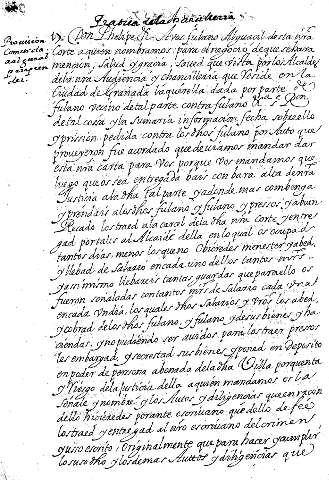 Pratica de la
Provision
Cometida
a alguacil
para prender
Don Phelipe &c. A vos fulano Alguacil de esta nra
Corte a quien nombramos para el negocio de que se hara
mencion, Salud y gracia, Saued que vista por los Alcaldes
de la nra Audiencia y Chancilleria que reside en la
Ciudad de Granada la querella dada por parte de
fulano vecino de tal parte contra fulano
de tal cosa y la Sumaria informacion fecha sobre ello
y prission pedida contra los dhos fulano por Auto que
proveyeron fue acordado que deuiamos mandar dar
esta nra carta para Vos por que vos mandamos que
luego que os sea entregada bais con bara alta de nra
Justicia a la dha tal parte y a donde mas combenga
y prendais a los dhos fulano y fulano y pressos y a buen
Recado los traed a la carcel de la dha nra Corte y entre
gad por tales al Alcaide della en lo qual os ocupad
tantos dias menos los que no obieredes menester y abed
y llebad de Salario en cada uno dellos tantos mrs
y assi mismo llebareis tantos guardas que para ello os
fueron señaladas con tantos mrs de Salario cada una
en cada un dia, los quales dhos Salarios y vros los abed
y cobrad de los dhos fulano, y fulano y de sus bienes y ha
ciendas, y no pudiendo ser auidos para los traer presos
les embargad, y secrestad sus bienes y poned en Deposito
en poder de persona abonada de la dha Villa por quenta
y Riesgo de la justicia della a quien mandamos os la
señale y nombre y los Autos y diligencias que en racon
dello hicieredes por ante escriuano que dello de fee
los traed y entregad al nro escriuano del crimen
y uso escrito originalmente que para hacer y cumplir
lo suso dho y los demas Auttos y diligencias que